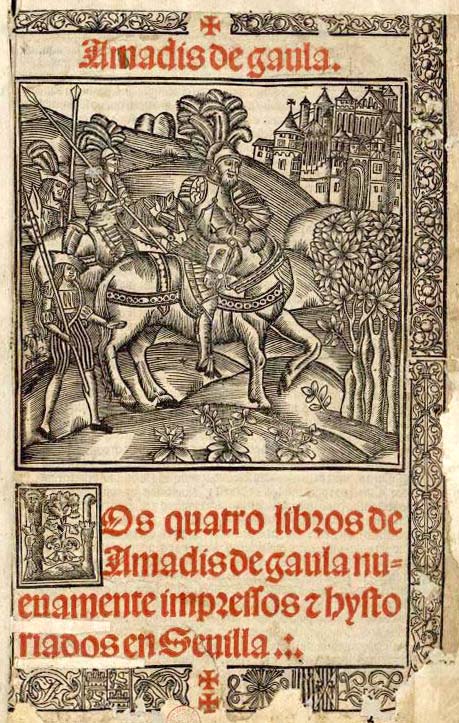 Amadis de gaula.
LOs quatro libros de
Amadis de gaula nu=
euamente impressos ⁊ hysto
riados en Seuilla.